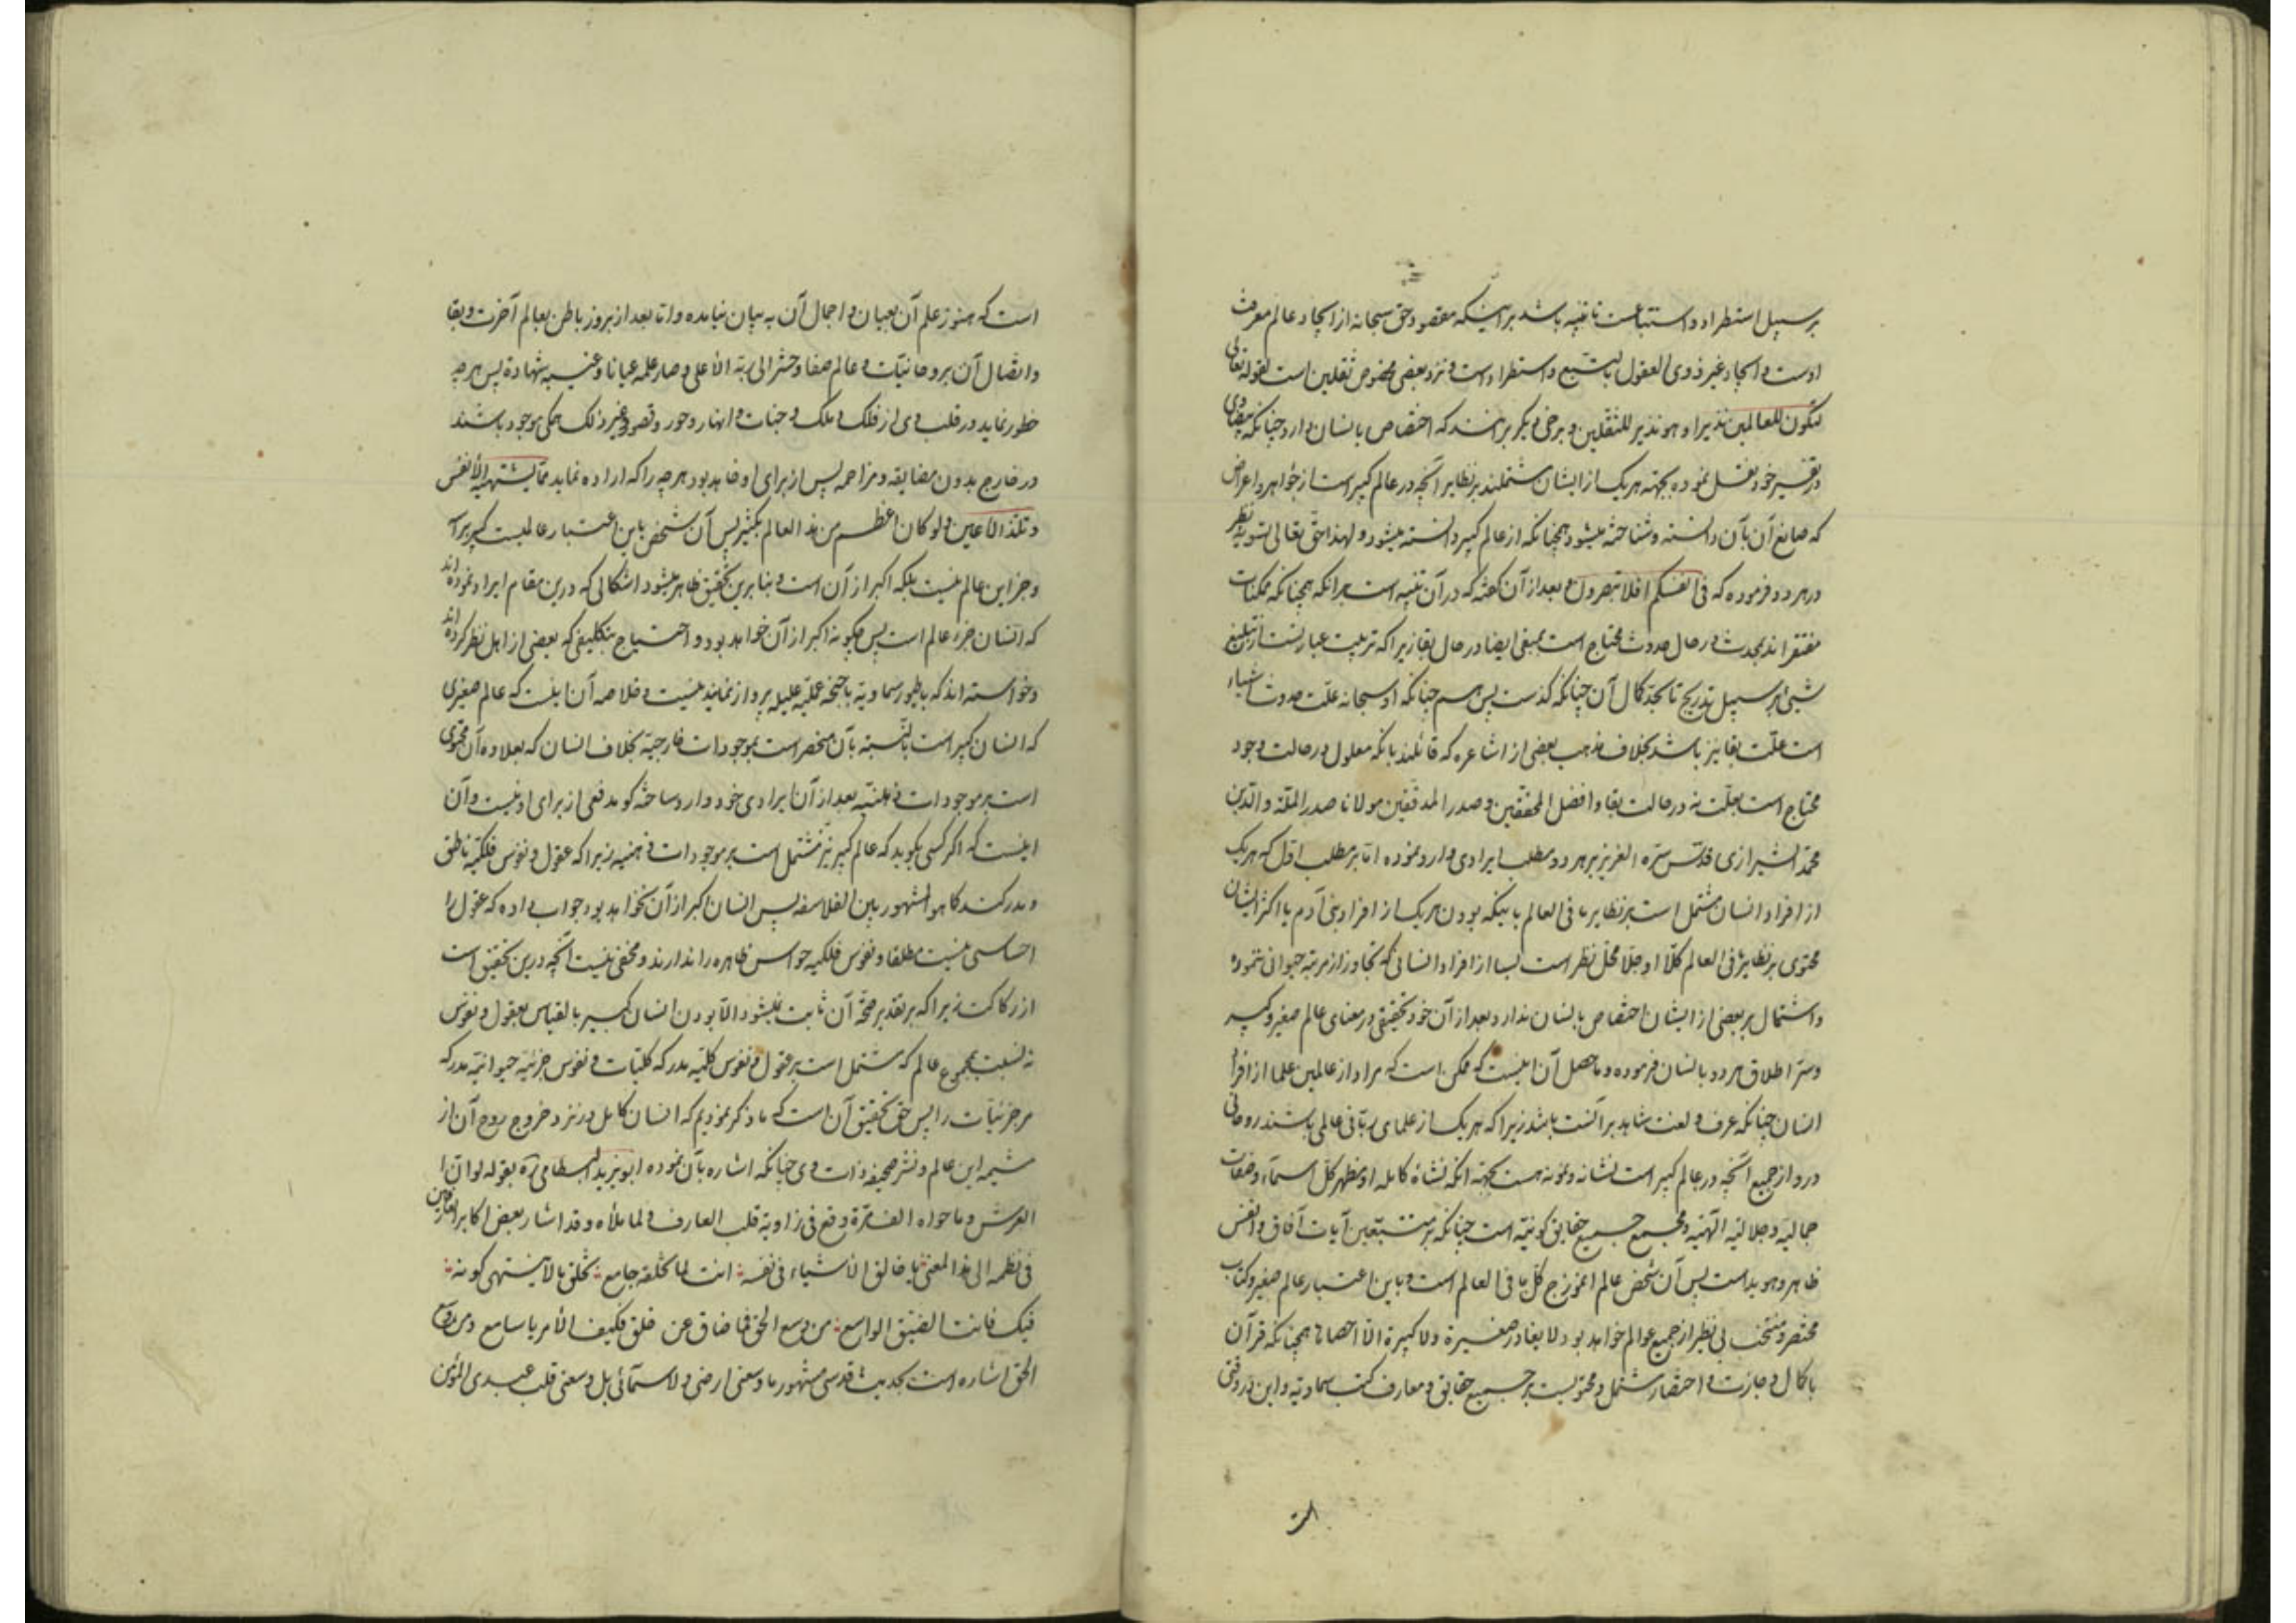 بر سبیل استطراد و استتباعست تا تنبیه باشد بر اینکه مقصود حق سبحانه از ایجاد عالم معرفت
اوست و ایجاد غیر ذوی العقول بالتبع و استطراد است و نزد بعضی مخصوص ثقلین است لقوله تعالی
لتکون للعالمین نذیرا و هو نذیر للثقلین و برخی دیگر برانند که اختصاص بانسان دارد چنانکه بیضاوی
در تفسیر خود نقل نموده بجهته هر یک از ایشان مشتملند بر نظایر آنچه در عالم کبیر است از جواهر و اعراض
که صانع آن بآن دانسته و شناخته میشود همچنانکه از عالم کبیر دانسته میشود و لهذا حق تعالی تسویه نظر
در هر دو فرموده که فی انفسکم افلا تبصرون و بعد از آن گفته که در آن تنبیه است برانکه همچنانکه ممکنات
مفتقراند بمحدث در حال حدوث محتاج است بمبقی ایضا در حال بقا زیرا که تربیت عبارتست از تبلیغ
شیئی بر سبیل تدریج تا بحد کمال آن چنانکه گذشت پس هم چنانکه او سبحانه علت حدوث اشیاء
است علت بقا نیز باشد بخلاف مذهب بعضی از اشاعره که قائلند بانکه معلول در حالت وجود
محتاج است بعلت نه در حالت بقا و افضل المحققین و صدر المدققین مولانا صدر الملة و الدین
محمد الشیرازی قدس سره العزیز بر هر دو مطلب ایرادی وارد نموده اما بر مطلب اول که هر یک
از افراد انسان مشتمل است بر نظایر ما فی العالم باینکه بودن هر یک از افراد بنی آدم یا اکثر ایشان
محتوی بر نظایر ما فی العالم کلّا او جلّا محل نظر است لیسا از افراد انسانی که تجاوز از مرتبه حیوان ننموده
و اشتمال بر بعضی از ایشان اختصاص بانسان ندارد و بعد از آن خود تحقیقی در معنای عالم صغیر و کبیر
و سر اطلاق هر دو بانسان فرموده و ماحصل آن اینست که ممکن است که مراد از عالمین علما از افراد
انسان چنانکه عرف و لغت شاهد بر آنست باشد زیرا که هر یک از علمای ربانی عالمی باشند روحانی
درو از جمیع آنچه در عالم کبیر است نشانه و نمونه هست بجهته انکه نشاه کامله او مظهر کل اسماء و صفات
جمالیه و جلالیه الهیه و مجمع جمیع حقایق کونیّه است چنانکه بر متتبعین آیات آفاق و انفس
ظاهر و هویداست پس آن شخص عالم انموزج کل ما فی العالم است و باین اعتبار عالم صغیر و کتاب
مختصر و منتخب بی نظیر از جمیع عوالم خواهد بود لا یغادر صغیرة و لا کبیرة الا احصاها همچنانکه قرآن
با کمال وجازت و اختصار مشتمل و محتویست بر جمیع حقایق و معارف کتب سماویه و این در وقتی
است
است که هنوز علم آن بعیان و اجمال آن به بیان نیامده و اما بعد از بروز باطن بعالم آخرت و بقا
و اتصال آن بروحانیّات و عالم صفا و حشر الی ربّه الأعلی و صار علمه عیانا و غیبه شهادة پس هر چه
خطور نماید در قلب وی از فلک و ملک و جنات و انهار و حور و قصور و غیر ذلک همگی موجود باشند
در خارج بدون مضایقه و مزاحمه پس از برای او خواهد بود هر چه را که اراده نماید ممّا یشتهیه الأنفس
و تلذ الأعین و لو کان اعظم من هذا العالم بکثیر پس آن شخص باین اعتبار عالمیست کبیر بر آ
و جز این عالم نیست بلکه اکبر از آن است و بنا برین تحقیق ظاهر میشود اشکالی که درین مقام ایراد نموده اند
که انسان جزء عالم است پس چگونه اکبر از آن خواهد بود و احتیاج بتکلیفی که بعضی از اهل نظر کرده اند
و خواسته اند که باطور سماویه باجنحه عملیّه علیله پرواز نمایند نیست و خلاصه آن اینست که عالم صغیری
که انسان کبیر است بالنسبه بآن منحصر است بموجودات خارجیّه بخلاف انسان که بعلاوه آن محتوی
است بر موجودات ذهنیّه بعد از آن ایرادی خود وارد ساخته گوید دفعی از برای او نیست و آن
اینست که اگر کسی بگوید که عالم کبیر نیز مشتمل است بر موجودات ذهنیه زیرا که عقول و نفوس فلکیّه ناطق
و مدرکند کما هو المشهور بین الفلاسفه پس انسان اکبر از آن نخواهد بود جواب داده که عقول را
احساسی نیست مطلقا و نفوس فلکیه حواس ظاهره را ندارند و مخفی نیست آنچه درین تحقیق است
از رکاکت زیرا که بر تقدیر صحّة آن ثابت نمیشود الّا بودن انسان کبیر بالقیاس بعقول و نفوس
نه نسبت بمجموع عالم که مشتمل است بر عقول و نفوس کلیّه مدرکه کلیّات و نفوس جزئیّه حیوانیّه مدرکه
مر جزئیّات را پس حق تحقیق آن است که ما ذکر نمودیم که انسان کامل در نزد خروج روح آن از
مشیمه این عالم و نشر صحیفه ذات وی چنانکه اشاره بآن نموده ابویزید البسطامی ره بقوله لو ان ا
العرش و ما حواه الف مرّة وقع فی زاویة قلب العارف لما ملأه و قد اشار بعض اکابر العارفین
فی نظمه الی هذا المعنی یا خالق الأشیاء فی نفسه انت لما تخلقه جامع تخلق مالا ینتهی کونه
فیک فانت الضیق الواسع من وسع الحق فما ضاق عن خلق فکیف الأمر یا سامع و من وسع
الحق اشاره است بحدیث قدسی مشهور ما وسعنی ارضی و لا سمائی بل وسعنی قلب عبدی المؤمن